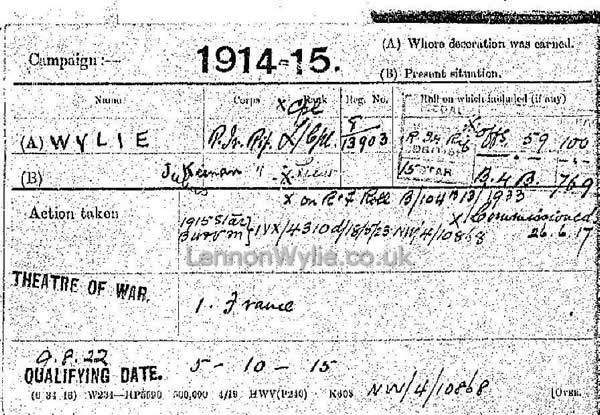 Campaign :—
1914-15.
(A) Where decoration was earned.
(B) Present situation.
Name Corps Rank Reg. No. Roll on which included (if any)
x Cpl
(A) WYLIE R. Ir. Rif. L/Cpl. 13903 R Ir Rif x Offs 59 100
(B) " x 15 STAR B.4B. 769
x on R & F Roll B/104 B 13/1933
Action taken
1915 Star
IVX/4310d/18/5/23 NW/4/10868
x Commissioned
26.6.17
LennonWylie.co.uk
THEATRE OF WAR.
1. France
9.8.22
QUALIFYING DATE.
5 - 10 - 15
(6 34 46) W234—HP5590 500,000 4/19 HWV(P240) K608
NW/4/10868
[OVER.